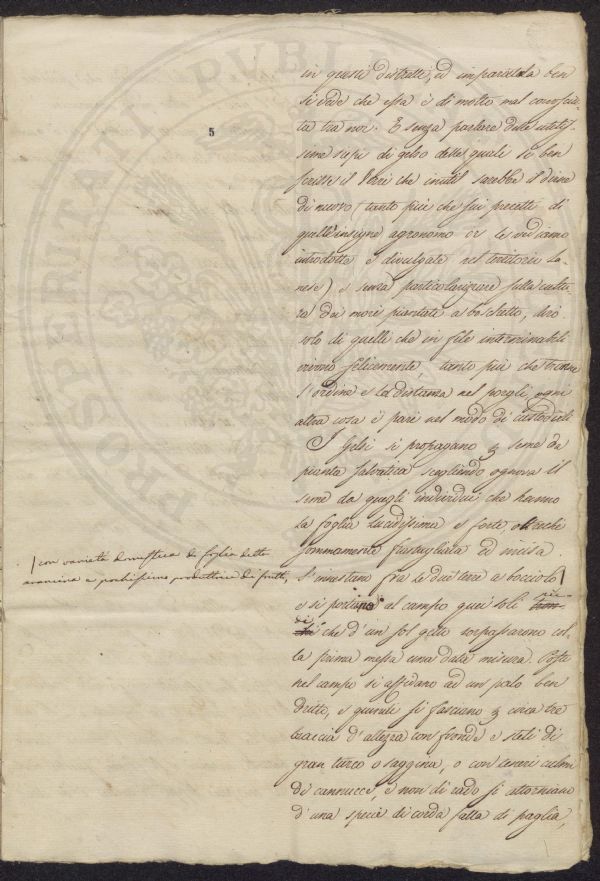 5
in questi distretti, ed imparatola ben
si vede che essa è di molto mal conosciu-
ta tra noi. E senza parlare delle utilis-
sime siepi di gelso delle quali sì ben
scrisse il Verri che inutil sarebbe il dirne
di nuovo (tanto più che sui precetti di
quell'insigne agronomo or le vediamo
introdotte e divulgate nel territorio Lu-
nese) e senza particolarizzare sulla cultu-
ra dei mori piantati a boschetto, dirò
solo di quelli che in file interminabili
vivono felicemente, tanto più che tranne
l'ordine e la distanza nel porgli, ogni
altra cosa è pari nel modo di custodirli
I Gelsi si propagano per seme da
pianta salvatica scegliendo ognora il
seme da quegli individui che hanno
la foglia lucidissima e forte, oltreché
sommamente frastagliata ed incisa.
S'innestano fra le due terre a bocciolo /
e si portano al campo quei soli
di che d'un sol getto sorpassarono col-
la prima messa una data misura. Posti
nel campo si affidano ad un palo ben
dritto, e quivi si fasciano per circa tre
braccia d'altezza con fronde e steli di
gran turco o saggina, o con teneri culmi
di cannucce, e non di rado si attorniano
d'una specie di corda fatta di paglia,
/ con varietà domestica di foglia detta
arancina e pochissimo produttrice di frutti,
PROSPERITATI PUBLICAE